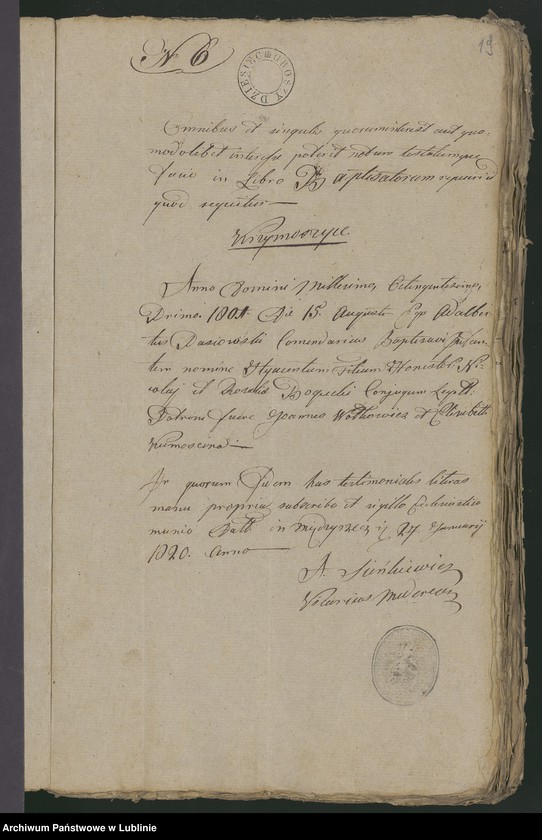 N 6
19
DZIESIĘC GROSZY
Omnibus et singulis quorum interest aut quo-
modolibet interesse poterit notum testatumque
facio in Libro Baptisatorum reperiri
quod sequitur
Krzymoszyce.
Anno Domini Millesimo Octingentesimo
Primo. 1801. Die 15. Augusti Ego Adalber
tus Commendarius Baptisavi Infan-
tem nomine Hyacintum Filium Stanislai Ni-
et Rosalia Conjugum Legitt:
Patrini fuere Joannes et Elisabeth
In quorum Fidem has testimoniales literas
manu propria subscribo et sigillo Ecclesiastico
munio Datt in 27 Januarij
1820. Anno
A. Sienkiewicz
Vicarius
Archiwum Państwowe w Lublinie